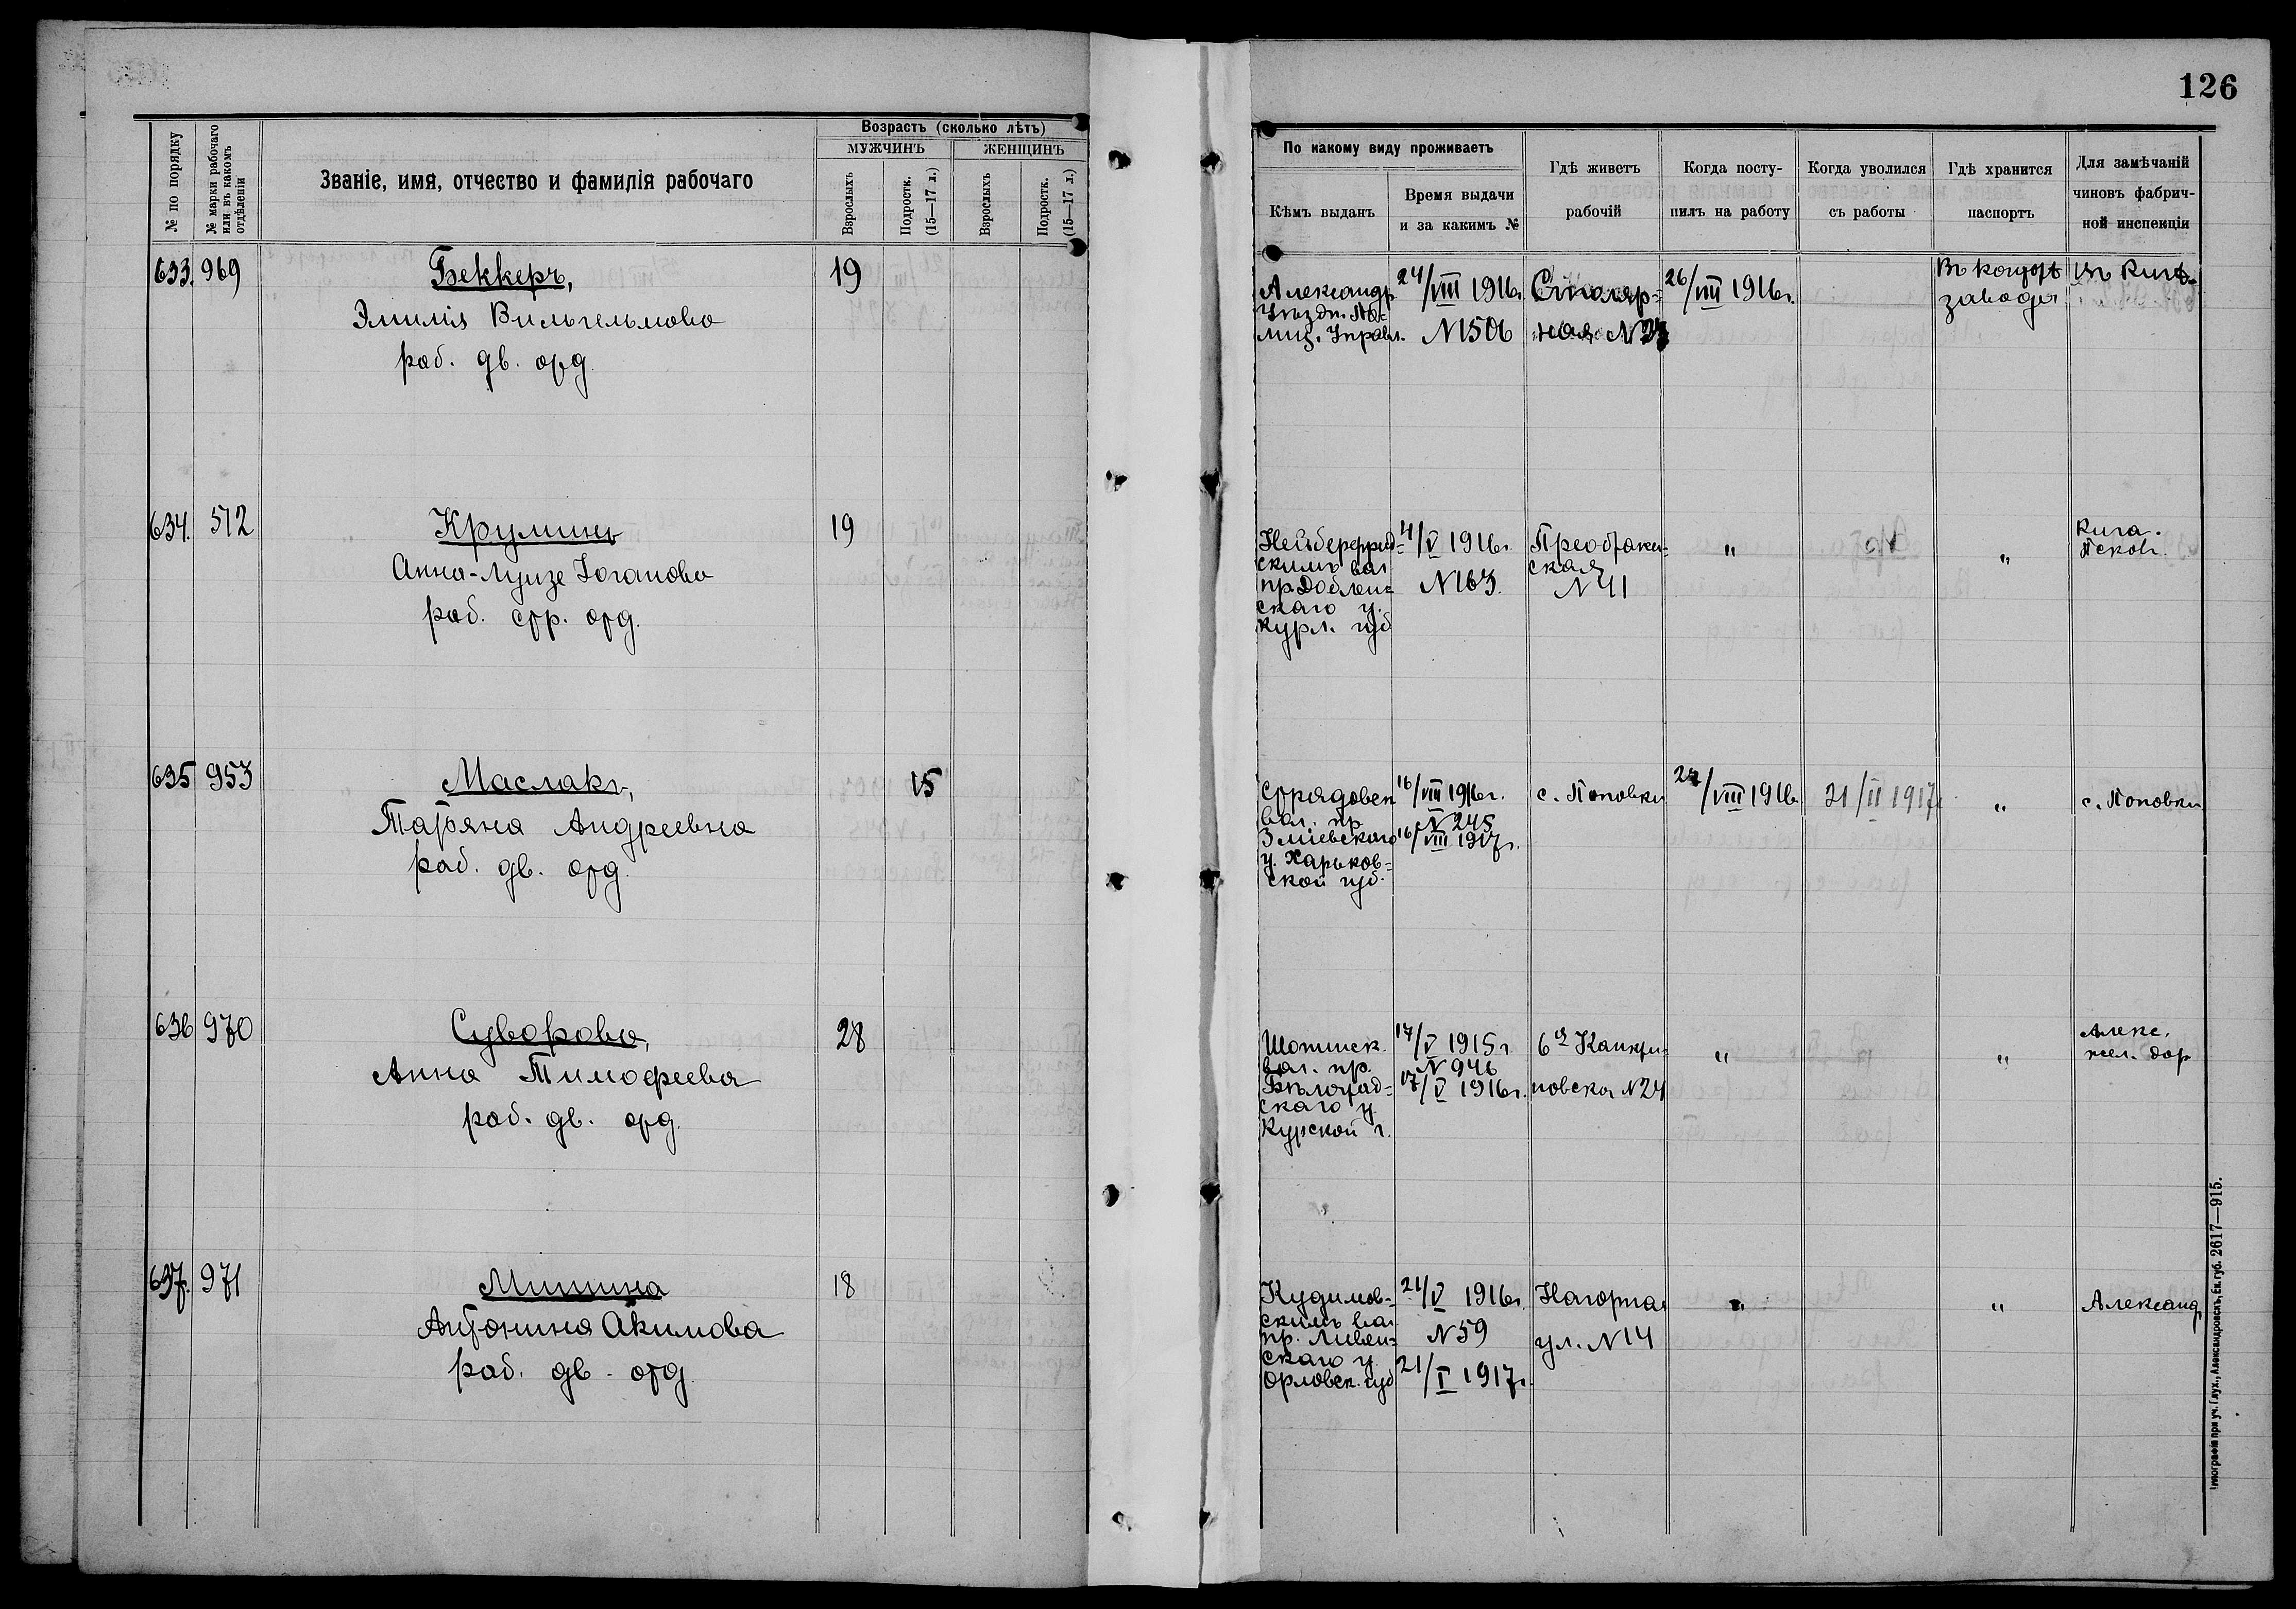 126
№ по порядку
№ марки рабочаго
или въ какомъ
отдѣленіи
Званіе, имя, отчество и фамилія рабочаго
Возрастъ (сколько лѣтъ)
МУЖЧИНЪ
ЖЕНЩИНЪ
Взрослыхъ
Подростк.
(15—17 л.)
Взрослыхъ
Подростк.
(15—17 л.)
По какому виду проживаетъ
Кѣмъ выданъ
Время выдачи
и за какимъ №
Гдѣ живетъ
рабочій
Когда посту-
пилъ на работу
Когда уволился
съ работы
Гдѣ хранится
паспортъ
Для замѣчаній
чиновъ фабрич-
ной инспекціи
633. 969
Беккеръ,
Эмилія Вильгельмова
раб. дв. отд.
19
Александр.
Уѣздн. По-
лиц. Управл.
24/VIII 1916г.
N1506
Столяр-
ная N
26/VIII 1916г.
Въ конторѣ
завода
634. 512
Круминь
Анна-Луизе Іоганова
раб. стр. отд.
19
скимъ вол
пр Доблен-
скаго у.
Курл. губ
/V 1916г.
N163.
Преображен-
ская
N41
"
"
Рига.
Псковъ.
635 953
Маслакъ,
Татьяна Андреевна
раб. дв. отд.
15
вол. пр
Зміевскаго
у. Харьков-
ской губ.
16/VIII 1916г.
N 245
16/VIII 1917г.
с. Поповки
/VIII 1916
21/II 1917г.
"
с. Поповки
636 970
Суворова,
Анна Тимофеева
раб. дв. отд.
28
вол. пр.
Бѣлград-
скаго у.
Курской г.
17/V 1915г
N 946
17/V 1916г.
6я Канкри-
новская N24
"
"
Алекс.
жел. дор
637. 971
Митина
Антонина Акимова
раб. дв. отд.
18
Кудинов-
скимъ вол
пр. Ливен-
скаго у.
Орловск. губ
21/V 1916г.
N59
21/I 1917г.
Нагорная
ул. N14
"
"
Александ
Типографія при уч. Глух., Александровскъ, Ек. губ. 2617—915.